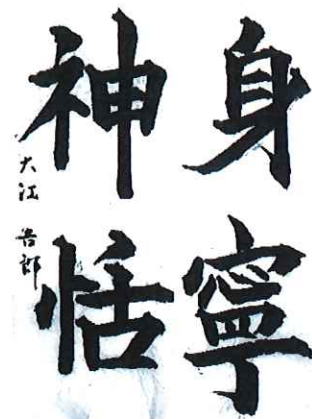 身寧
神恬
大江 吾郎